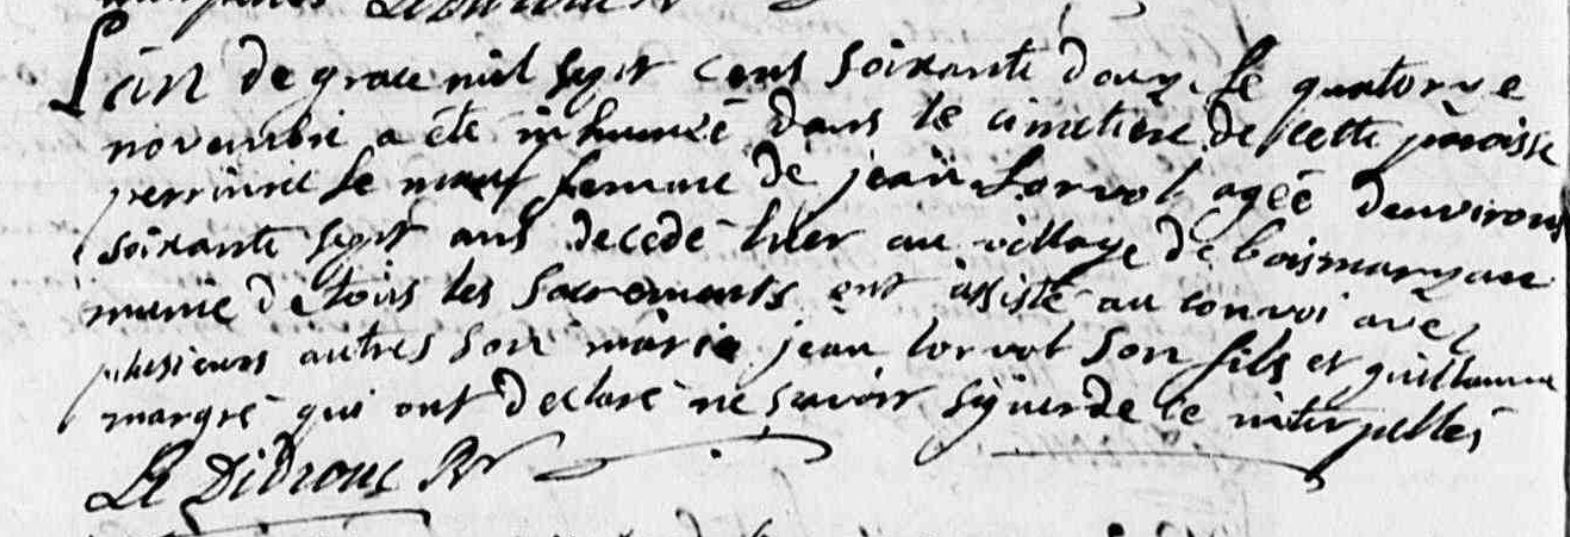 L'an de grace mil sept cent soixante douze le quatorze
novembre a été inhumée dans le cimetiere de cette paroisse
perrinne le neuf femme de jean Lorvol agée d'environ
soixante sept ans decedé hier au village de boismarzan
munie de tous les sacrements ont assisté au convoi avec
plusieurs autres son marie jean lorvol son fils et guillaume
margré qui ont declaré ne scavoir signer de ce interpellés
Le Didroux Rr